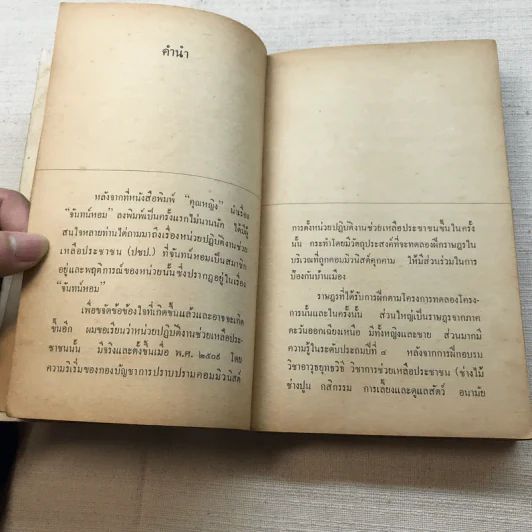 คำนำ
หลังจากที่หนังสือพิมพ์ “คุณหญิง” นำเรื่อง
“จันทน์หอม” ลงพิมพ์เป็นครั้งแรกไม่นานนัก ได้มีผู้
สนใจหลายท่านไต่ถามมาถึงเรื่องหน่วยปฏิบัติงานช่วย
เหลือประชาชน (ปชป.) ที่จันทน์หอมเป็นสมาชิก
อยู่และพฤติการณ์ของหน่วยนั้นซึ่งปรากฏอยู่ในเรื่อง
“จันทน์หอม”
เพื่อขจัดข้อข้องใจที่เกิดขึ้นแล้วและอาจจะเกิด
ขึ้นอีก ผมขอเรียนว่าหน่วยปฏิบัติงานช่วยเหลือประ-
ชาชนนั้น มีจริงและตั้งขึ้นเมื่อ พ.ศ. ๒๕๐๙ โดย
ความริเริ่มของกองบัญชาการปราบปรามคอมมิวนิสต์
การตั้งหน่วยปฏิบัติงานช่วยเหลือประชาชนขึ้นในครั้ง
นั้น กระทำโดยมีวัตถุประสงค์ที่จะทดลองฝึกราษฎรใน
บริเวณที่ถูกคอมมิวนิสต์คุกคาม ให้มีส่วนร่วมในการ
ป้องกันบ้านเมือง
ราษฎรที่ได้รับการฝึกตามโครงการทดลองโครง-
การนั้นและในครั้งนั้น ส่วนใหญ่เป็นราษฎรจากภาค
ตะวันออกเฉียงเหนือ มีทั้งหญิงและชาย ส่วนมากมี
ความรู้ในระดับประถมปีที่ ๔ หลังจากการฝึกอบรม
วิชาอาวุธยุทธวิธี วิชาการช่วยเหลือประชาชน (ช่างไม้
ช่างปูน กสิกรรม การเลี้ยงและดูแลสัตว์ อนามัย